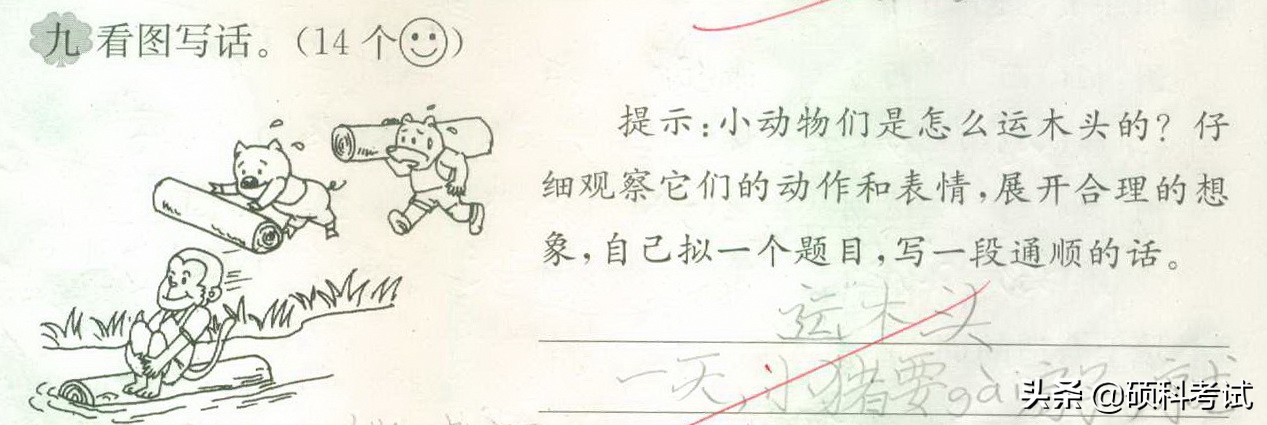 九 看图写话。(14 个)
提示:小动物们是怎么运木头的? 仔
细观察它们的动作和表情,展开合理的想
象,自己拟一个题目,写一段通顺的话。
运木头
一天,小猪要gài
头条 @硕科考试